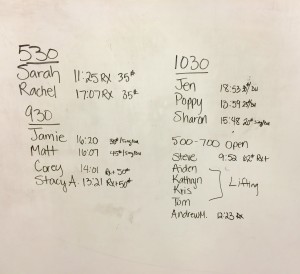 530
Sarah 11:25 RX 35#
Rachel 17:07 RX 35#
930
Jamie 16:20
Matt 16:07
Corey 14:01 RX+50#
Stacy A. 13:21 RX+50#
1030
Jen 18:53
Poppy
Sharon 15:48
500-700 Open
Steve 9:52 62# RX+
Aiden
Kathryn
Kris
Tom
Lifting
Andrew M. 12:23 RX